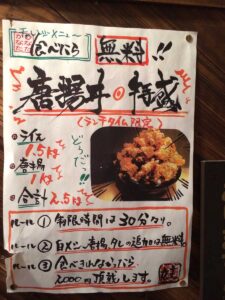 チャレンジメニュー
食べたら
無料!!
唐揚丼の特盛
(ランチタイム限定)
◎ライス
1.5kg
◎唐揚
1kg
◎合計2.5kg
どうだ!!
ルール① 制限時間は30分なり。
ルール② 白メシ、唐揚、タレの追加は無料。
ルール③ 食べきれなかったら
2000円頂戴します。